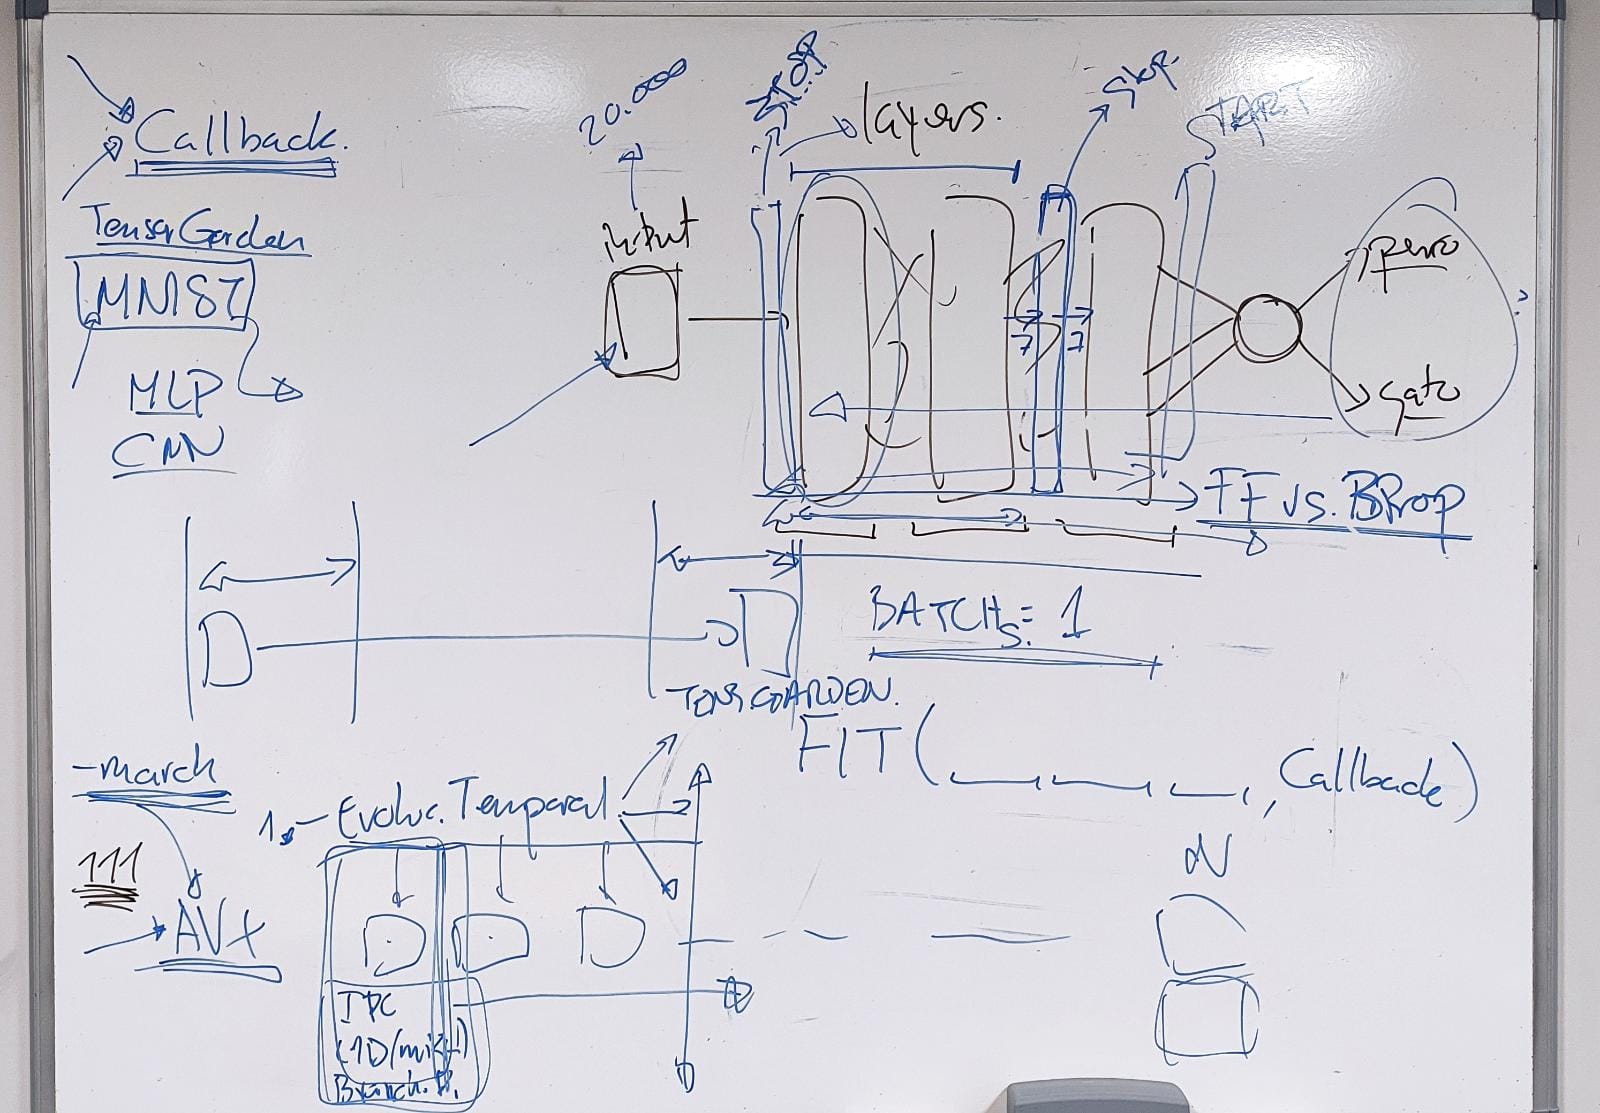 Callback.
TensorGarden
MNIST
MLP
CNN
20.000
input
STOP
layers.
Stop.
START
7
7
perro
gato
?
FF vs. BProp
BATCHs.=1
TENS.GARDEN.
FIT( , Callback)
-march
111
AVX
1.- Evoluc. Temporal
IPC
Branch.
N